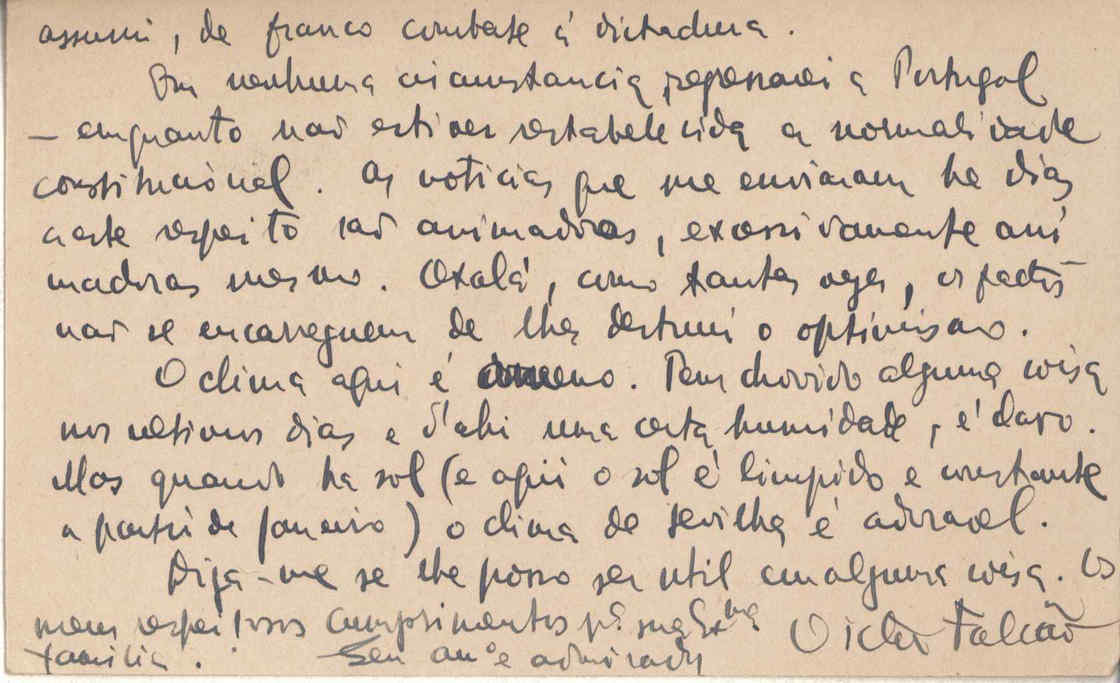 assumi, de franco combate á dictadura.
Em nenhuma circumstancia regressarei a Portugal
– emquanto não estiver restabelecida a normalidade
constitucional. As noticias que me enviaram ha dias
a este respeito são animadoras, excessivamente ani
madoras mesmo. Oxalá, como tantas vezes, os factos
não se encarreguem de lhes destruir o optimismo.
O clima aqui é ameno. Tem chovido alguma coisa
nos ultimos dias e d'ahi uma certa humidade, é claro.
Mas quando ha sol (e aqui o sol é limpido e constante
a partir de Janeiro) o clima de Sevilha é adoravel.
Diga-me se lhe posso ser util em alguma coisa. Os
meus respeitosos cumprimentos pª sua Exma
familia. Seu amº e admirador
Victor Falcão